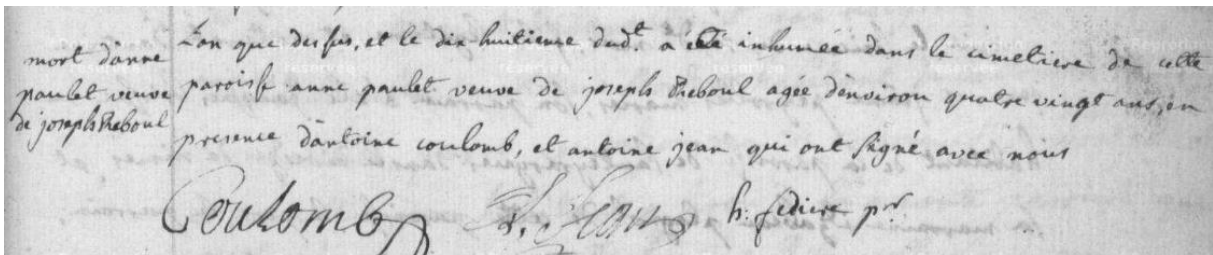 mort d'anne
paulet veuve
de joseph Reboul
L'an que dessus, et le dix huitieme dudt. a eté inhumée dans le cimetiere de cette
paroisse anne paulet veuve de joseph Reboul agée d'environ quatre vingt ans, en
presence d'antoine coulomb, et antoine jean qui ont signé avec nous
Coulomb A. Jean h: fediere pr.